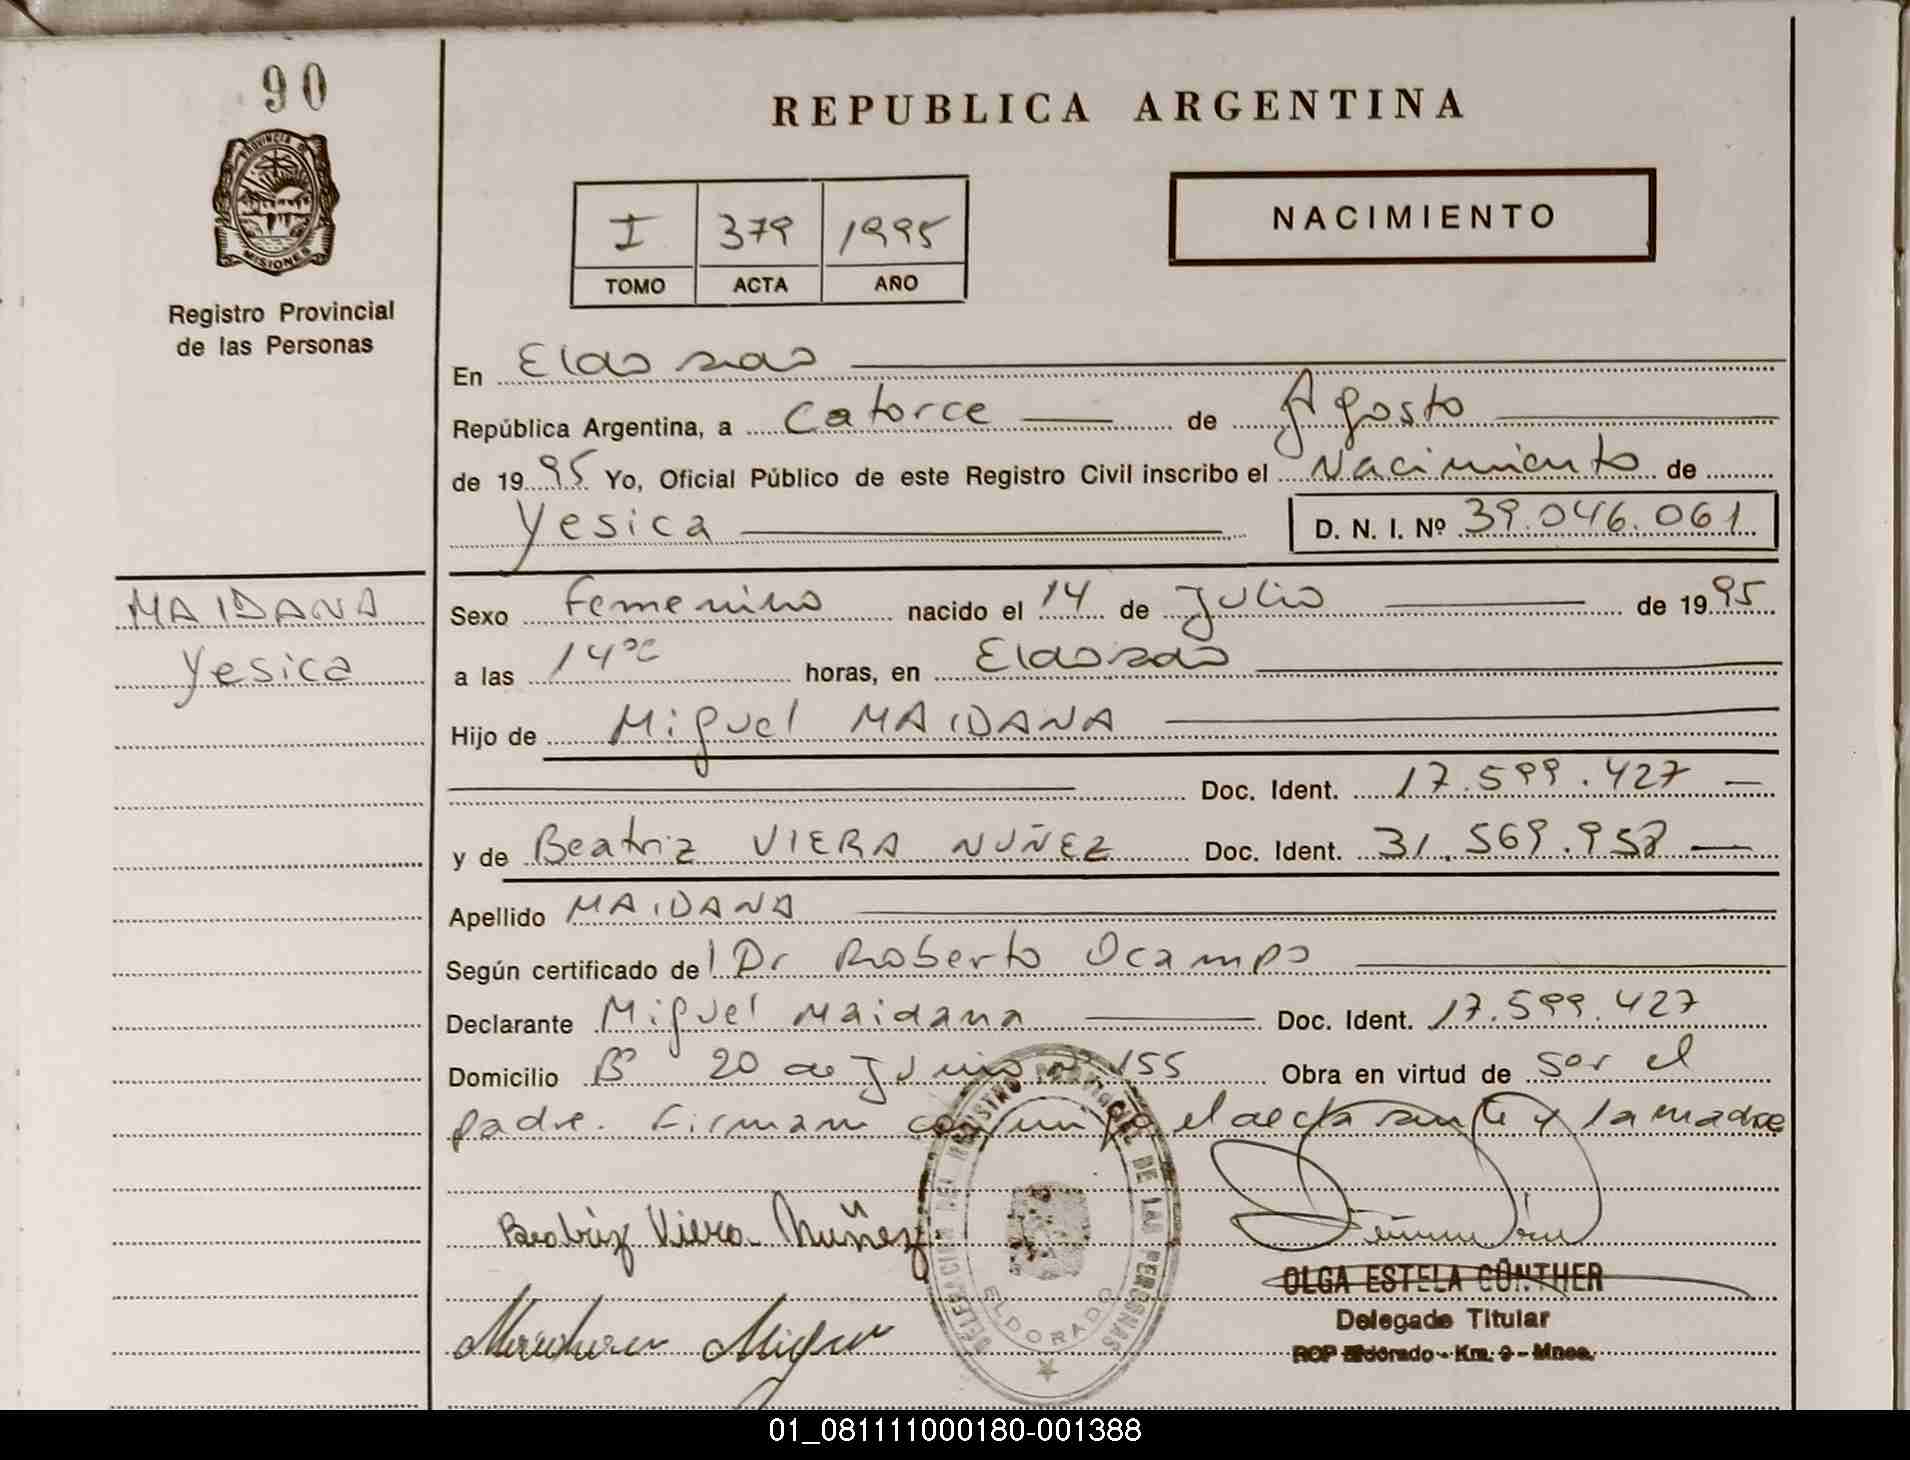 90
PROVINCIA DE
MISIONES
Registro Provincial
de las Personas
REPUBLICA ARGENTINA
I 379 1995
TOMO ACTA AÑO
NACIMIENTO
En Eldorado
República Argentina, a Catorce de Agosto
de 1995 Yo, Oficial Público de este Registro Civil inscribo el Nacimiento de
Yesica D. N. I. Nº 39.046.061
MAIDANA
Yesica
Sexo Femenino nacido el 14 de Julio de 1995
a las 14 horas, en Eldorado
Hijo de Miguel MAIDANA
Doc. Ident. 17.599.427
y de Beatriz VIERA NUÑEZ Doc. Ident. 31.569.958
Apellido MAIDANA
Según certificado del Dr Roberto Ocampo
Declarante Miguel Maidana Doc. Ident. 17.599.427
Domicilio Bº 20 de Junio nº 155 Obra en virtud de ser el
padre. Firman conjunto el declarante y la madre
Beatriz Viera Nuñez
DELEGACION DEL REGISTRO PROVINCIAL DE LAS PERSONAS
ELDORADO
OLGA ESTELA GÜNTHER
Delegada Titular
RCP Eldorado - Km. 9 - Mnes.
Miguel
01_081111000180-001388